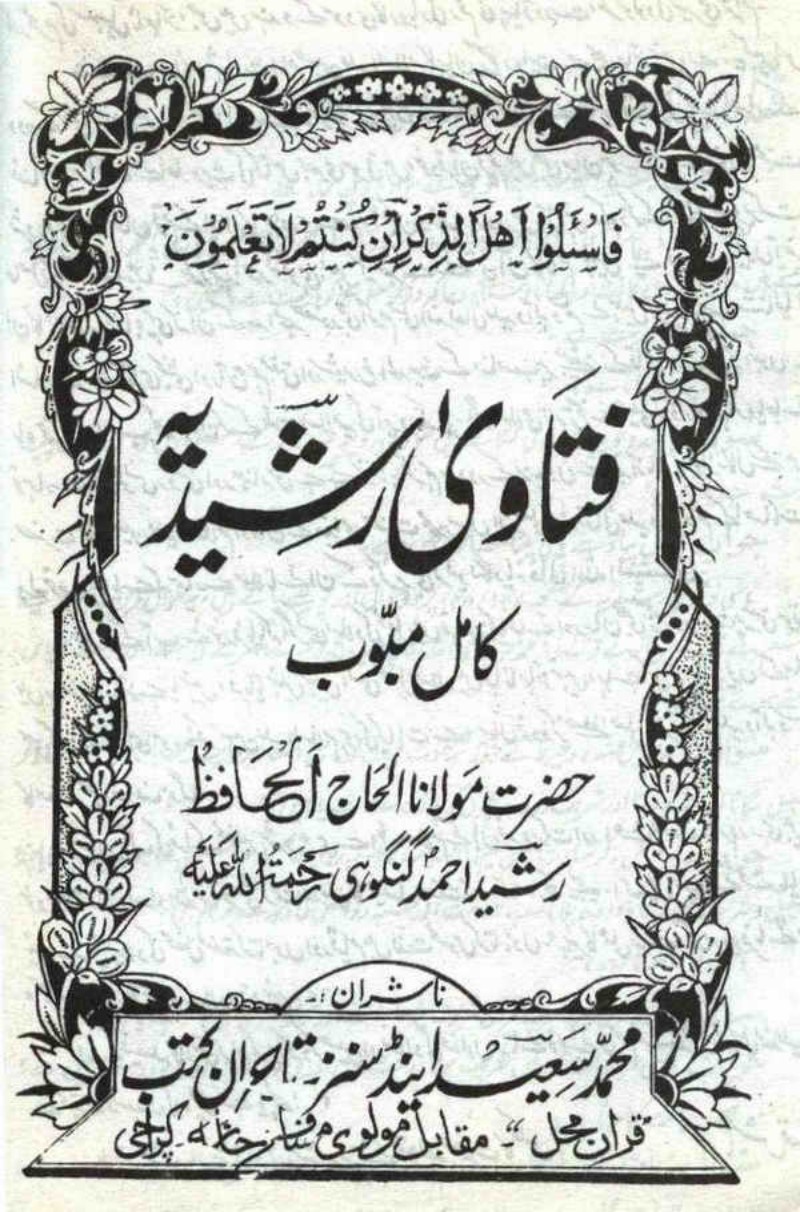 فَاسْئَلُوْا اَهْلَ الذِّكْرِ اِنْ كُنْتُمْ لَا تَعْلَمُوْنَ
فتاویٰ رشیدیہ
کامل مبوّب
حضرت مولانا الحاج الحافظ
رشید احمد گنگوہی رحمۃ اللہ علیہ
ناشران :-
محمد سعید اینڈ سنز تاجران کتب
قرآن محل - مقابل مولوی مسافر خانہ کراچی